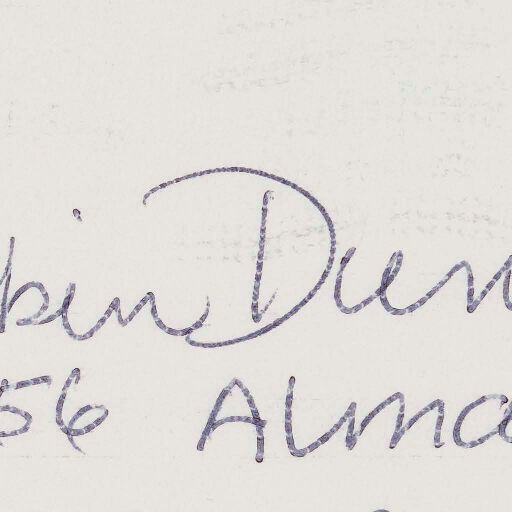 bin Dun
56 Alma